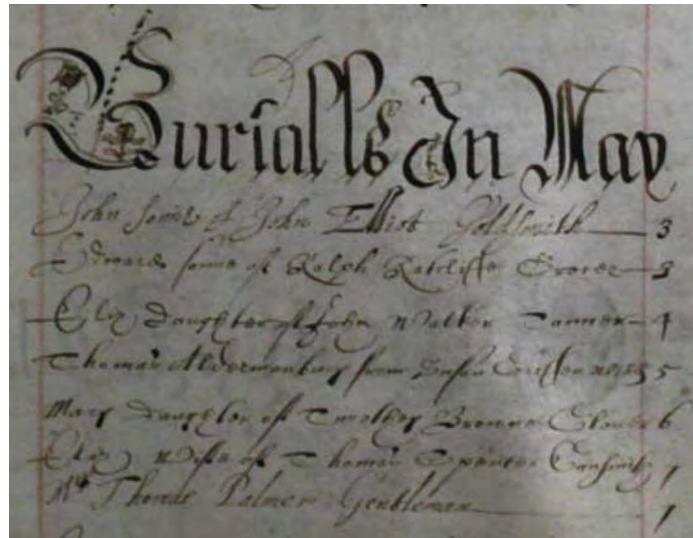 Buriall's In May
John sonne of John Elliot Goldsmith 3
Edward sonne of Ralph Ratcliffe Grocer 3
Eliz daughter of John Walker Tanner 4
Thomas Aldermanbury from 5
Mary daughter of Timothy Browne Glover 6
Eliz Wife of Thomas Spencer Gunsmith 1
Mr Thomas Palmer Gentleman 1